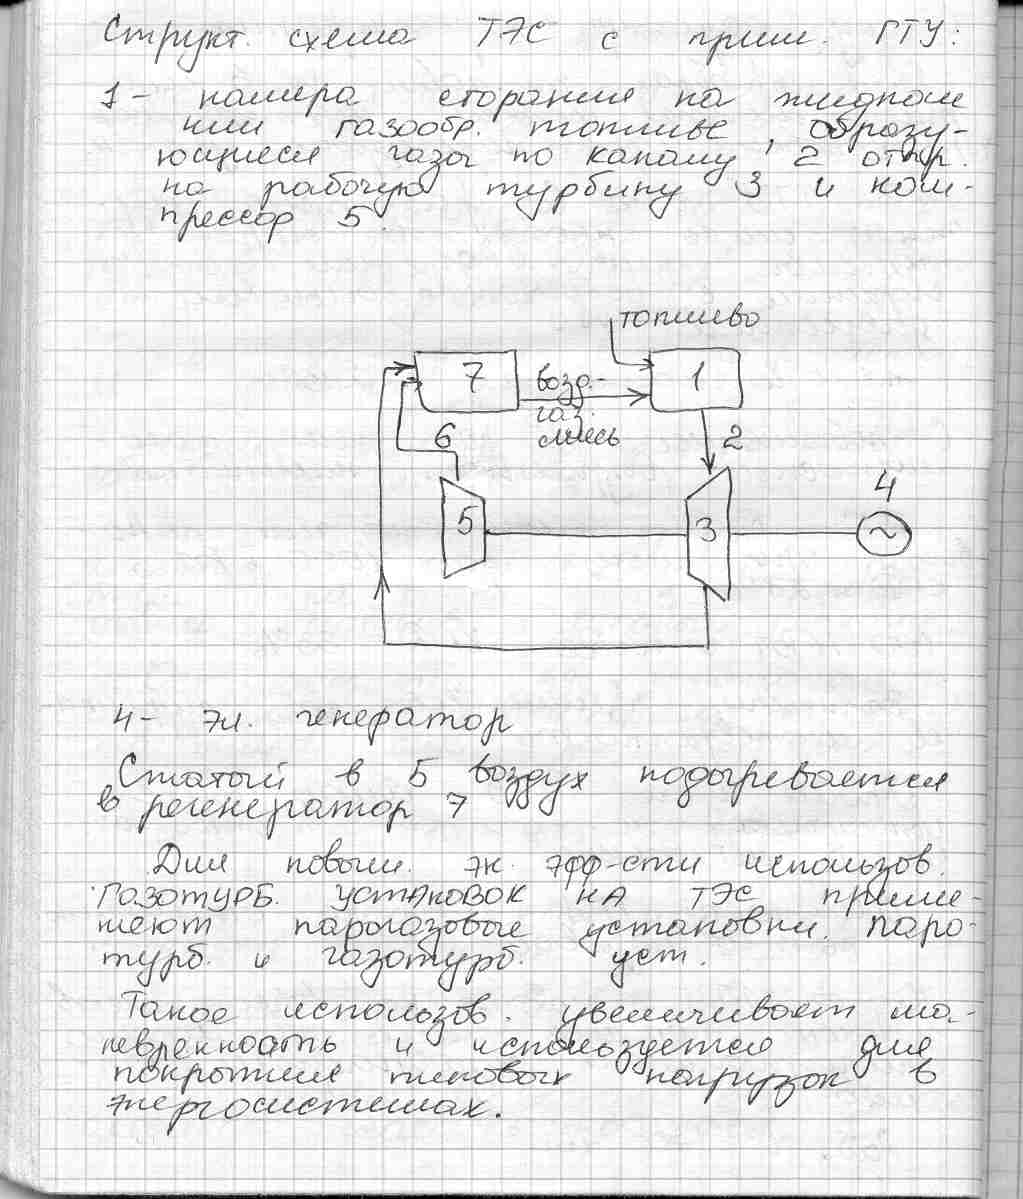 Структ. схема ТЭС с прим. ГТУ:
1 - камера сгорания на жидком
или газообр. топливе, образу-
ющиеся газы по каналу 2 отпр.
на рабочую турбину 3 и ком-
прессор 5.
топливо
7
1
возд.-
газ.
смесь
6
2
4
5
3
~
4 - эл. генератор
Сжатый в 5 воздух подогревается
в регенератор 7
Для повыш. эк. эфф-сти использов.
газотурб. установок на ТЭС приме-
няют парогазовые установки. паро-
турб. и газотурб. уст.
Такое использов. увеличивает ма-
невренность и используется для
покрытия пиковых нагрузок в
энергосистемах.